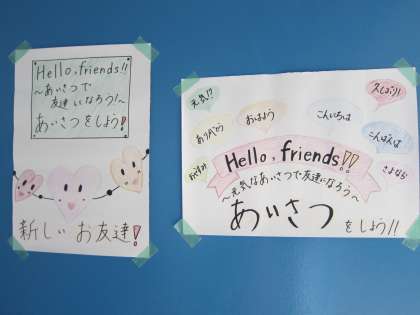 Hello, friends!!
～あいさつで
友達になろう!～
あいさつをしよう!
新しいお友達!
元気!?
ありがとう
おはよう
こんにちは
久しぶり!!
こんばんは
さよなら
Hello, friends!!
～元気なあいさつで友達になろう～
あいさつ
をしよう!!